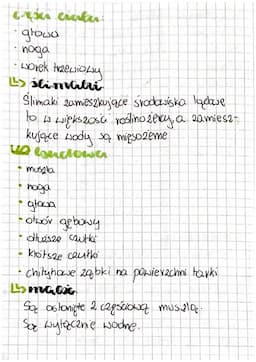 części ciała:
• głowa
• noga
• worek trzewiowy
↳ ślimaki
Ślimaki zamieszkujące środowisko lądowe
to w większości roślinożercy, a zamiesz-
kujące wody są mięsożerne
↳ budowa
• muszla
• noga
• głowa
• otwór gębowy
• dłuższe czułki
• krótsze czułki
• chitynowe ząbki na powierzchni tarki
↳ małże
Są osłonięte 2 częściową muszlą.
Są wyłącznie wodne.